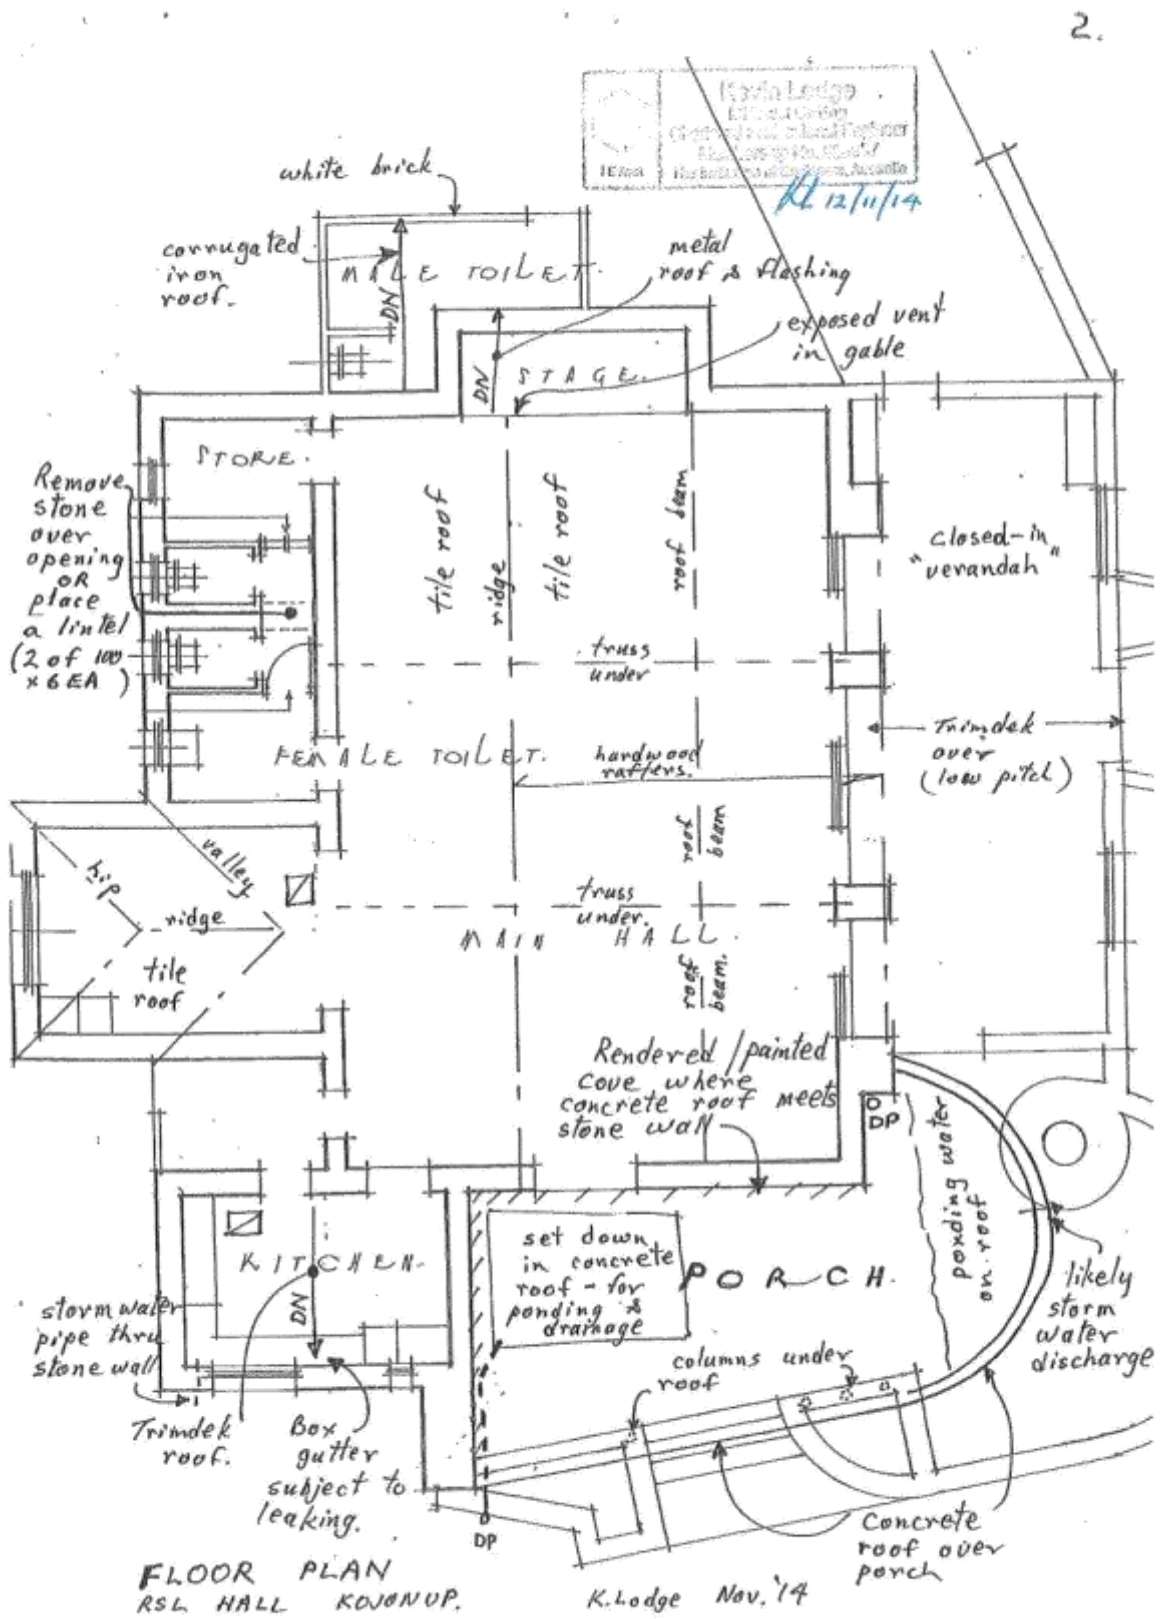 2.
Kevin Lodge
KL 12/11/14
white brick
corrugated
iron
roof.
MALE TOILET.
DN
metal
roof & flashing
exposed vent
in gable
DN
STAGE.
STORE.
Remove
stone
over
opening
OR
place
a lintel
(2 of 100
x 6 EA)
tile roof
ridge
tile roof
roof beam
closed-in
"verandah"
truss
under
FEMALE TOILET.
hardwood
rafters.
Trimdek
over
(low pitch)
roof
beam
valley
hip
ridge
tile
roof
truss
under.
MAIN HALL.
roof
beam.
Rendered/painted
cove where
concrete roof meets
stone wall
DP
ponding water
on roof
KITCHEN.
DN
set down
in concrete
roof - for
ponding &
drainage
PORCH.
likely
storm
water
discharge
storm water
pipe thru
stone wall
columns under
roof
Trimdek
roof.
Box
gutter
subject to
leaking.
DP
Concrete
roof over
porch
FLOOR PLAN
RSL HALL KOJONUP.
K.Lodge Nov.'14